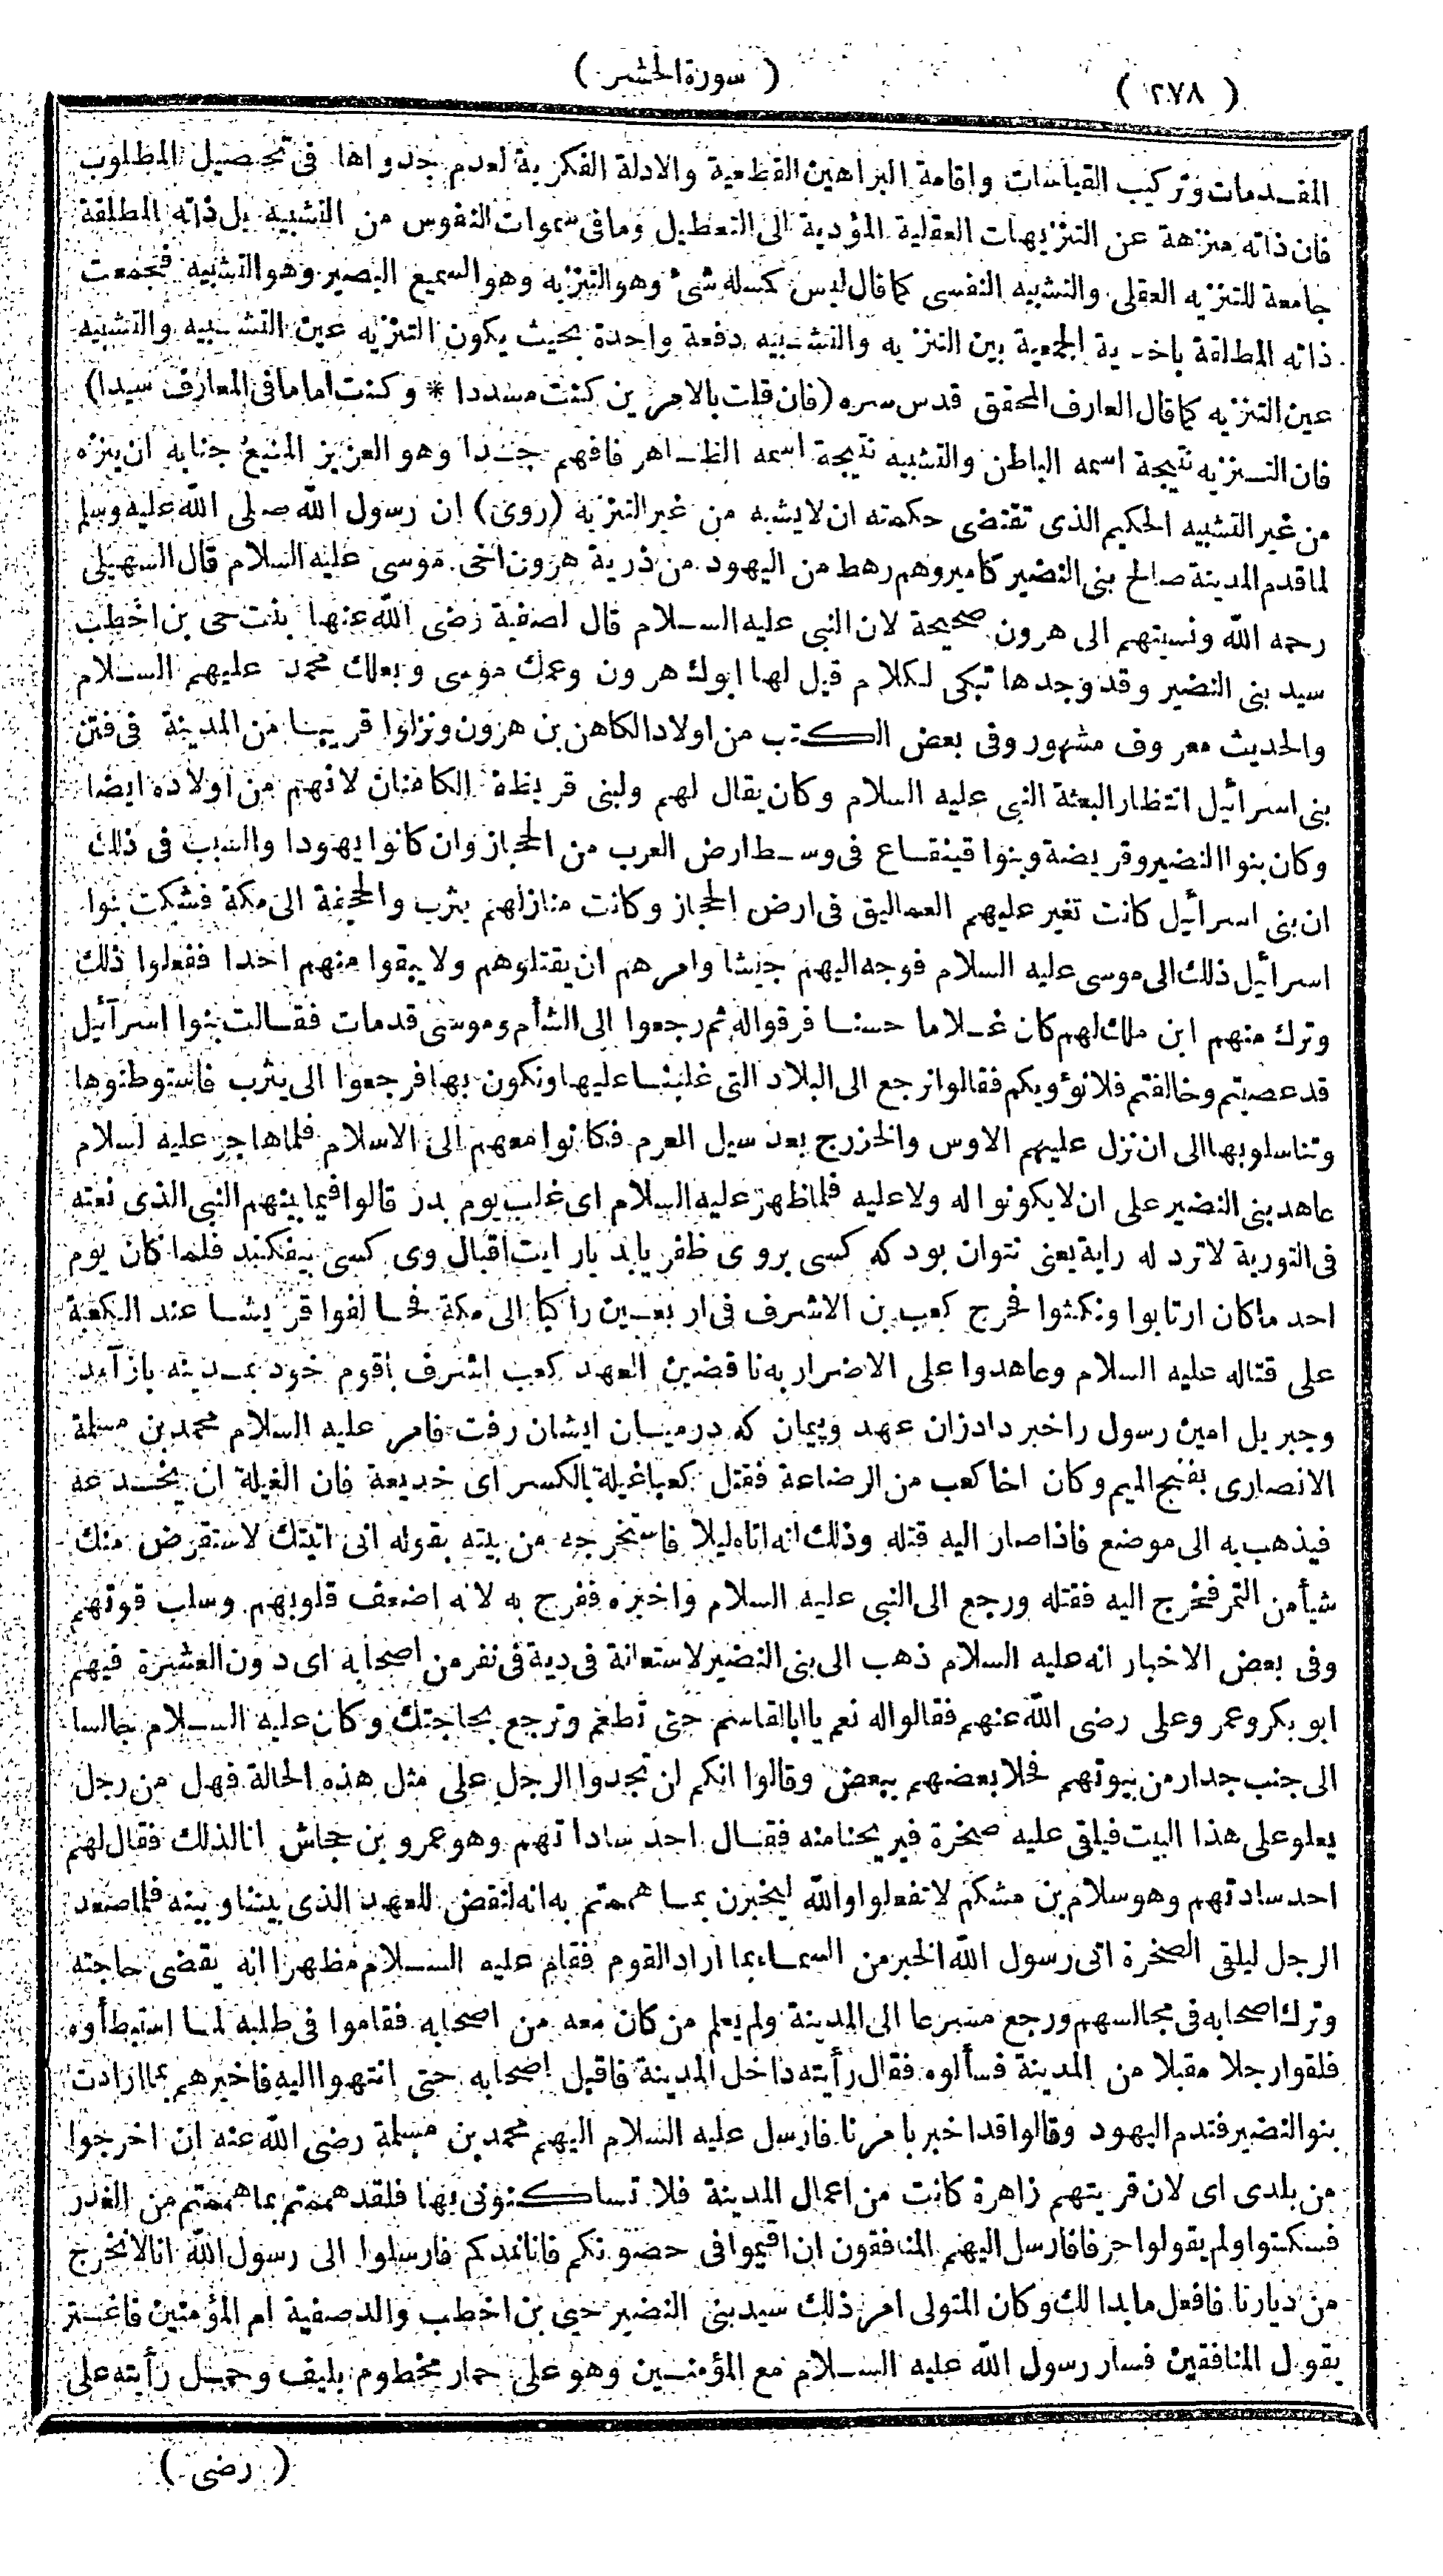 ( ٢٧٨ ) ( سورة الحشر )
المقدمات وتركيب القياسات واقامة البراهين القطعية والادلة الفكرية لعدم جدواها فى تحصيل المطلوب
فان ذاته منزهة عن التنزيهات العقلية المؤدية الى التعطيل وما فى سموات النفوس من التشبيه بل ذاته المطلقة
جامعة للتنزيه العقلى والتشبيه النفسى كما قال ليس كمثله شئ وهو التنزيه وهو السميع البصير وهو التشبيه فجمعت
ذاته المطلقة باحدية الجمعية بين التنزيه والتشبيه دفعة واحدة بحيث يكون التنزيه عين التشبيه والتشبيه
عين التنزيه كما قال العارف المحقق قدس سره (فان قلت بالامرين كنت مسددا * وكنت اماما فى المعارف سيدا)
فان التنزيه نتيجة اسمه الباطن والتشبيه نتيجة اسمه الظاهر فافهم جدا وهو العزيز المنيع جنابه ان ينزه
من غير التشبيه الحكيم الذى تقتضى حكمته ان لا يشبه من غير التنزيه (روى) ان رسول الله صلى الله عليه وسلم
لما قدم المدينة صالح بنى النضير كامير وهم رهط من اليهود من ذرية هرون اخى موسى عليه السلام قال السهيلى
رحمه الله ونسبتهم الى هرون صحيحة لان النبى عليه السلام قال لصفية رضى الله عنها بنت حى بن اخطب
سيد بنى النضير وقد وجدها تبكى لكلام قيل لها ابوك هرون وعمك موسى وبعلك محمد عليهم السلام
والحديث معروف مشهور وفى بعض الكتب من اولاد الكاهن بن هرون ونزلوا قريبا من المدينة فى فتن
بنى اسرائيل انتظارا لبعثة النبى عليه السلام وكان يقال لهم ولبنى قريظة الكاهنان لانهم من اولاده ايضا
وكان بنوا النضير وقريضة وبنوا قينقاع فى وسط ارض العرب من الحجاز وان كانوا يهودا والسبب فى ذلك
ان بنى اسرائيل كانت تغير عليهم العماليق فى ارض الحجاز وكانت منازلهم يثرب والجحفة الى مكة فشكت بنوا
اسرائيل ذلك الى موسى عليه السلام فوجه اليهم جيشا وامرهم ان يقتلوهم ولا يبقوا منهم احدا ففعلوا ذلك
وترك منهم ابن ملك لهم كان غلاما حسنا فرقوا له ثم رجعوا الى الشأم وموسى قد مات فقالت بنوا اسرآئيل
قد عصيتم وخالفتم فلا نؤويكم فقالوا نرجع الى البلاد التى غلبنا عليها ونكون بها فرجعوا الى يثرب فاستوطنوها
وتناسلو بها الى ان نزل عليهم الاوس والخزرج بعد سيل العرم فكانوا معهم الى الاسلام فلما هاجر عليه لسلام
عاهد بنى النضير على ان لا يكونوا له ولا عليه فلما ظهر عليه السلام اى غلب يوم بدر قالوا فيما بينهم النبى الذى نعته
فى التورية لا ترد له راية يعنى نتوان بود كه كسى بروى ظفر يابد يار ايت اقبال وى كسى بيفكند فلما كان يوم
احد ماكان ارتابوا ونكثوا فخرج كعب بن الاشرف فى اربعين راكبا الى مكة فحالفوا قريشا عند الكعبة
على قتاله عليه السلام وعاهدوا على الاضرار به ناقضين العهد كعب اشرف باقوم خود بمدينه بازآمد
وجبريل امين رسول را خبر داد زان عهد وپيمان كه درميان ايشان رفت فامر عليه السلام محمد بن مسلمة
الانصارى بفتح الميم وكان اخا كعب من الرضاعة فقتل كعبا غيلة بالكسر اى خديعة فان الغيلة ان يخدعه
فيذهب به الى موضع فاذا صار اليه قتله وذلك انه اتاه ليلا فاستخرجه من بيته بقوله انى اتيتك لاستقرض منك
شيأ من التمر فخرج اليه فقتله ورجع الى النبى عليه السلام واخبره ففرح به لانه اضعف قلوبهم وسلب قوتهم
وفى بعض الاخبار انه عليه السلام ذهب الى بنى النضير لاستعانة فى دية فى نفر من اصحابه اى دون العشرة فيهم
ابو بكر وعمر وعلى رضى الله عنهم فقالوا له نعم يا ابا القاسم حتى تطعم وترجع بحاجتك وكان عليه السلام جالسا
الى جنب جدار من بيوتهم فخلا بعضهم ببعض وقالوا انكم لن تجدوا الرجل على مثل هذه الحالة فهل من رجل
يعلو على هذا البيت فيلقى عليه صخرة فيريحنا منه فقال احد ساداتهم وهو عمرو بن جحاش انا لذلك فقال لهم
احد ساداتهم وهو سلام بن مشكم لا تفعلوا والله ليخبرن بما هممتم به انه لنقض للعهد الذى بيننا وبينه فلما صعد
الرجل ليلقى الصخرة اتى رسول الله الخبر من السماء بما اراد القوم فقام عليه السلام مظهرا انه يقضى حاجته
وترك اصحابه فى مجالسهم ورجع مسرعا الى المدينة ولم يعلم من كان معه من اصحابه فقاموا فى طلبه لما استبطأوه
فلقوا رجلا مقبلا من المدينة فسألوه فقال رأيته داخل المدينة فاقبل اصحابه حتى انتهوا اليه فاخبرهم بما ارادت
بنو النضير فندم اليهود وقالوا قد اخبر بامرنا فارسل عليه السلام اليهم محمد بن مسلمة رضى الله عنه ان اخرجوا
من بلدى اى لان قريتهم زاهرة كانت من اعمال المدينة فلا تساكنونى بها فلقد هممتم بما هممتم من الغدر
فسكتوا ولم يقولوا حرفا فارسل اليهم المنافقون ان اقيموا فى حصونكم فانا نمدكم فارسلوا الى رسول الله انا لا نخرج
من ديارنا فافعل ما بدا لك وكان المتولى امر ذلك سيد بنى النضير حيى بن اخطب والد صفية ام المؤمنين فاغتر
بقول المنافقين فسار رسول الله عليه السلام مع المؤمنين وهو على حمار مخطوم بليف وحمل رأيته على
( رضى )